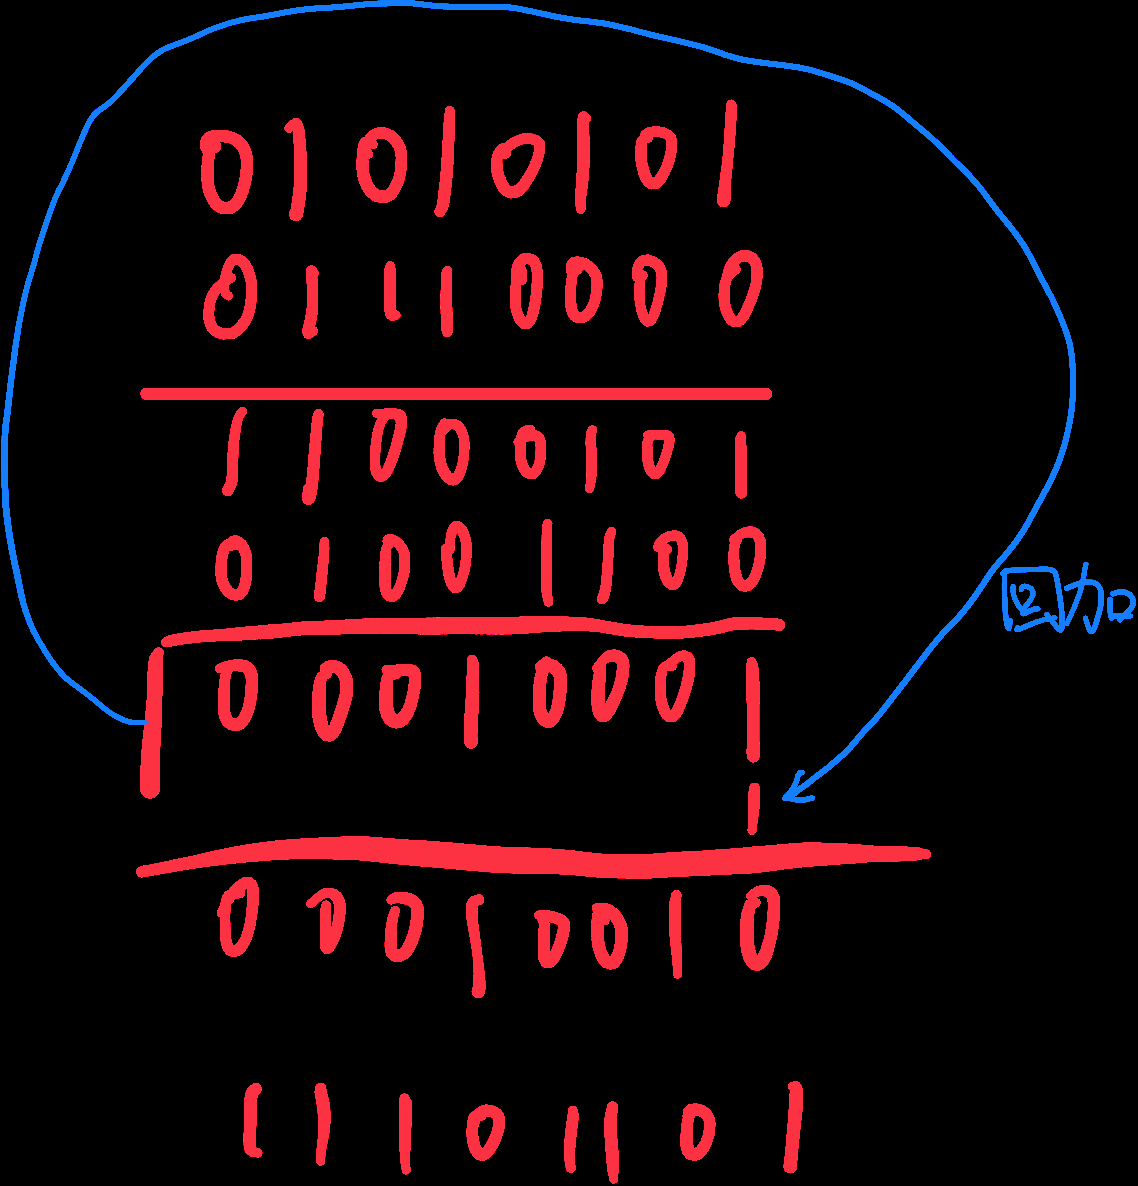 01010101
01110000
11000101
01001100
1 00010001
回加
1
00010010
11101101